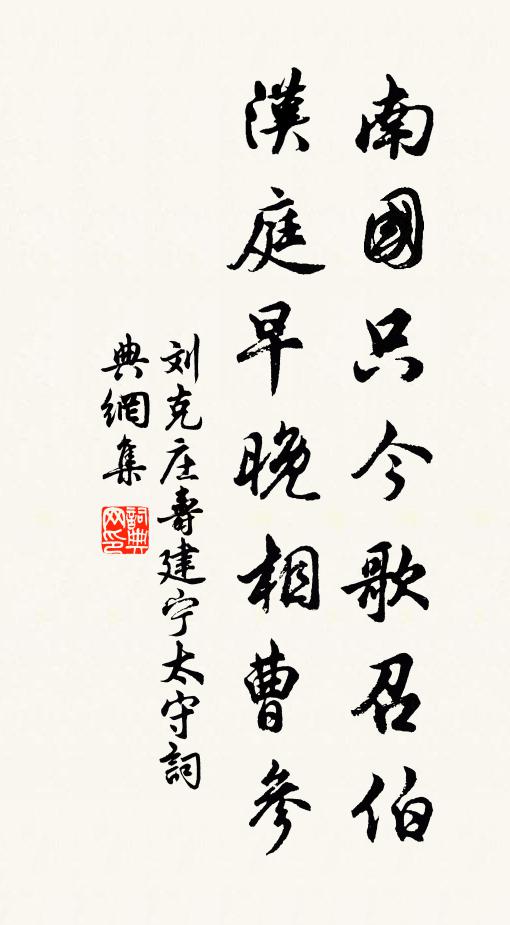 南國只今歌召伯
漢庭早晚相曹參
刘克庄壽建宁太守詞
典網集
詞典网印